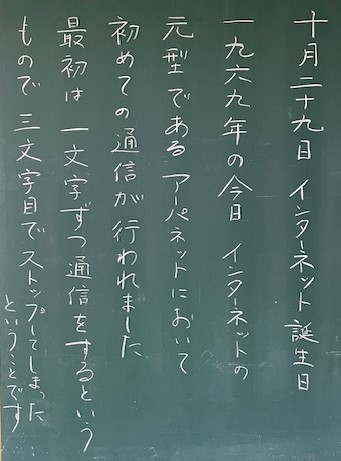 十月二十九日 インターネット誕生日
一九六九年の今日 インターネットの
元型である アーパネットにおいて
初めての通信が行われました
最初は 一文字ずつ通信をするという
もので 三文字目でストップしてしまった
ということです…